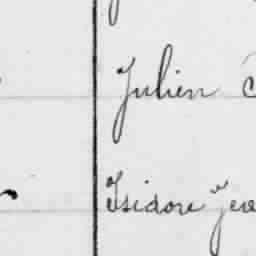 Julien
Isidore